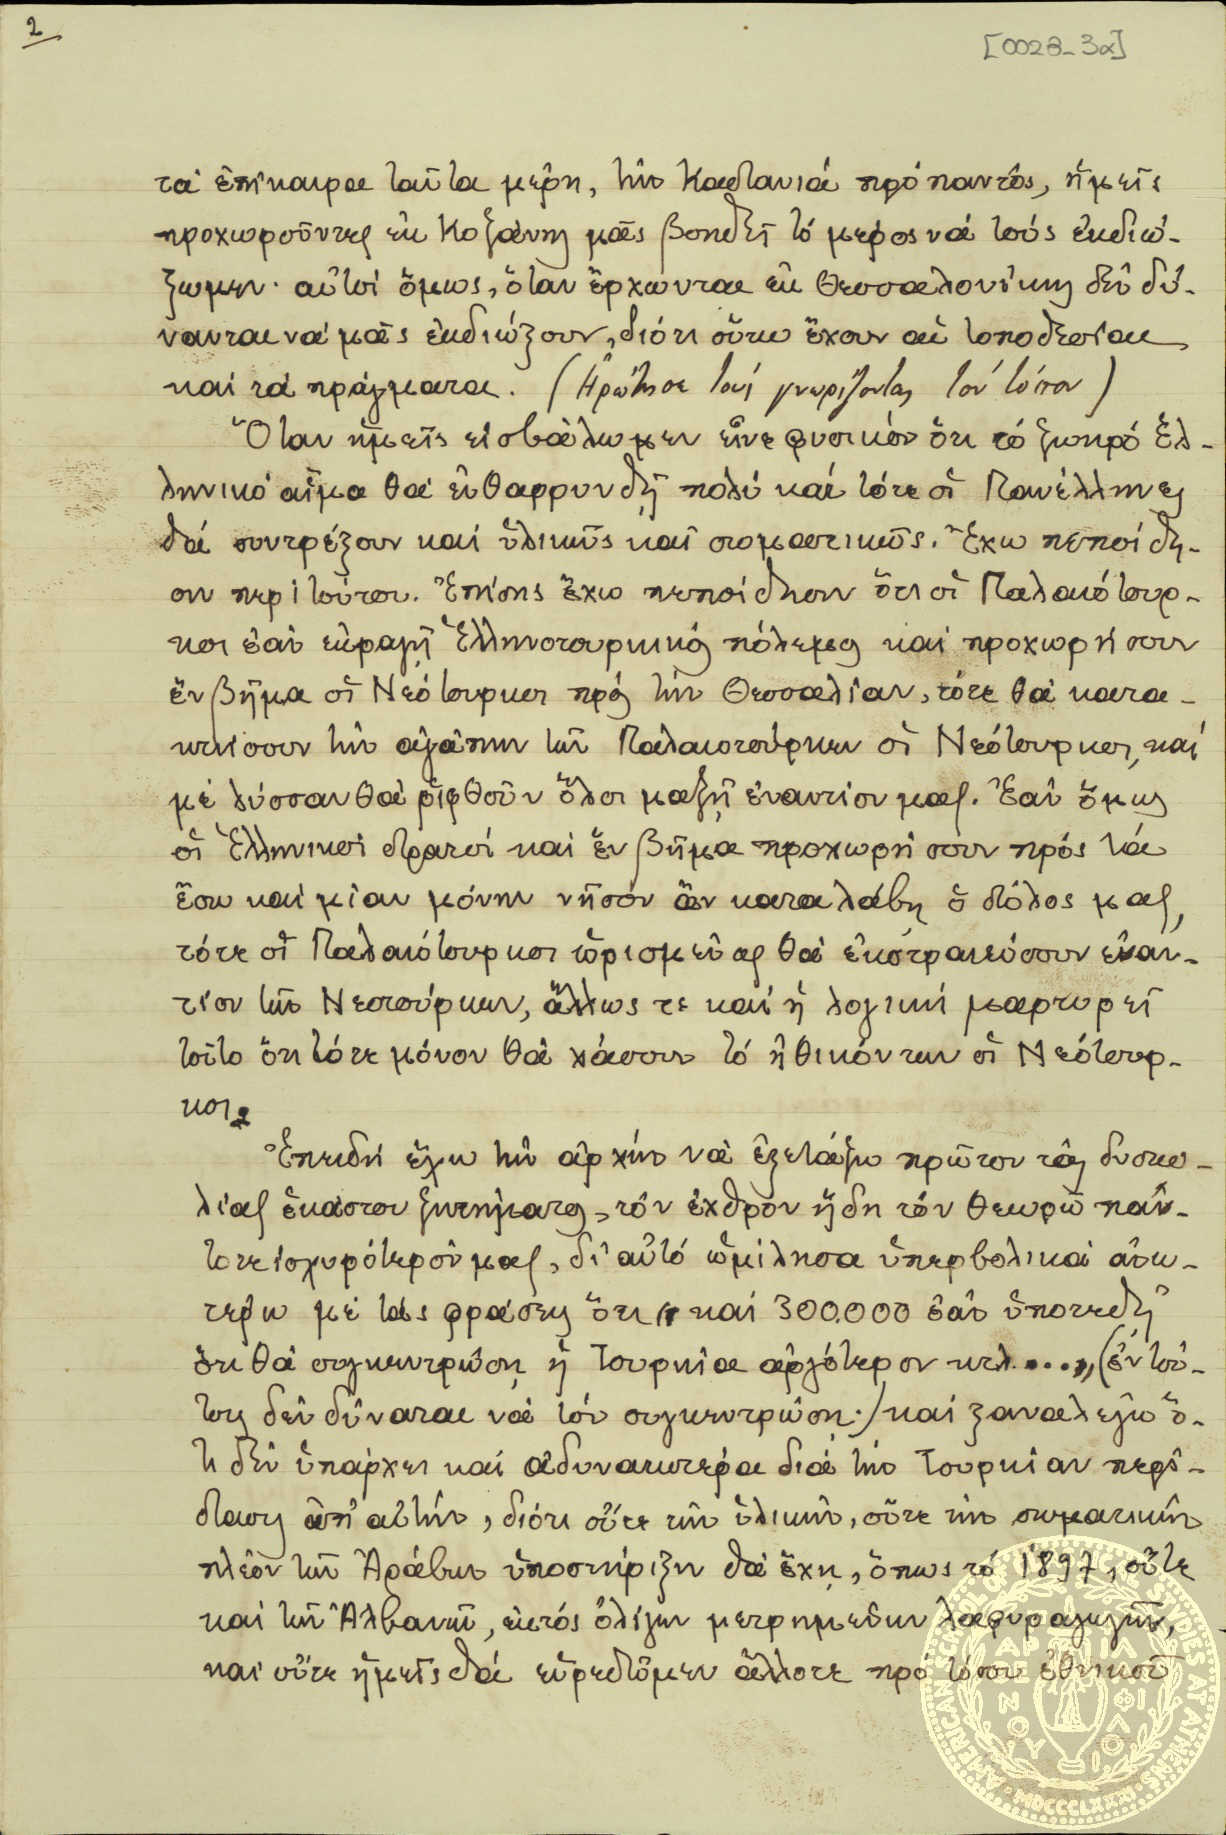 2
[0028_3α]
τά ἐπίκαιρα ταῦτα μέρη, τήν Καστανιά πρό παντός, ἡμεῖς
προχωροῦντες ἐκ Κοζάνης μᾶς βοηθεῖ τό μέρος νά τούς ἐκδιώ-
ξωμεν· αὐτοί ὅμως, ὅταν ἔρχωνται ἐκ Θεσσαλονίκης δέν δύ-
νανται νά μᾶς ἐκδιώξουν, διότι οὕτω ἔχουν αἱ τοποθεσίαι
καί τά πράγματα. (Ἠρώτησα τούς γνωρίζοντας τόν τόπον)
Ὅταν ἡμεῖς εἰσβάλωμεν εἶνε φυσικόν ὅτι τό ζωηρό ἑλ-
ληνικό αἷμα θά ἐνθαρρυνθῇ πολύ καί τότε οἱ Πανέλληνες
θά συντρέξουν καί ὑλικῶς καί σωματικῶς. Ἔχω πεποίθη-
σιν περί τούτου. Ἐπίσης ἔχω πεποίθησιν ὅτι οἱ Παλαιότουρ-
κοι ἐάν ἐκραγῇ Ἑλληνοτουρκικός πόλεμος καί προχωρήσουν
ἕν βῆμα οἱ Νεότουρκοι πρός τήν Θεσσαλίαν, τότε θά κατα-
κτήσουν τήν ἀγάπην τῶν Παλαιοτούρκων οἱ Νεότουρκοι, καί
μέ λύσσαν θά ριφθοῦν ὅλοι μαζῆ ἐναντίον μας. Ἐάν ὅμως
οἱ Ἑλληνικοί στρατοί καί ἕν βῆμα προχωρήσουν πρός τά
ἔσω καί μίαν μόνην νῆσον ἄν καταλάβῃ ὁ στόλος μας,
τότε οἱ Παλαιότουρκοι ὡρισμένως θά ἐκστρατεύσουν ἐναν-
τίον τῶν Νεοτούρκων, ἄλλως τε καί ἡ λογική μαρτυρεῖ
τοῦτο ὅτι τότε μόνον θά χάσουν τό ἠθικόν των οἱ Νεότουρ-
κοι.
Ἐπειδή ἔχω τήν ἀρχήν νά ἐξετάζω πρῶτον τάς δυσκο-
λίας ἑκάστου ζητήματος, τόν ἐχθρόν ἤδη τόν θεωρῶ πάν-
τοτε ἰσχυρότερόν μας, δι' αὐτό ὡμίλησα ὑπερβολικά ἀνω-
τέρω μέ τάς φράσεις ὅτι καί 300.000 ἐάν ὑποτεθῇ
ὅτι θά συγκεντρώσῃ ἡ Τουρκία ἀργότερον κτλ...., (ἐν τού-
τοις δέν δύναται νά τόν συγκεντρώσῃ.) καί ξαναλέγω ὅ-
τι δέν ὑπάρχει καί ἀδυνατωτέρα διά τήν Τουρκίαν περί-
στασις ἀπ' αὐτήν, διότι οὔτε τήν ὑλικήν, οὔτε τήν σωματικήν
πλέον τῶν Ἀράβων ὑποστήριξιν θά ἔχῃ, ὅπως τό 1897, οὔτε
καί τῶν Ἀλβανῶν, ἐκτός ὀλίγων μετρημένων λαφυραγωγῶν,
καί οὔτε ἡμεῖς θά εὑρεθῶμεν ἄλλοτε πρό τόσου ἐθνικοῦ
AMERICAN SCHOOL OF CLASSICAL STUDIES AT ATHENS · MDCCCLXXXI